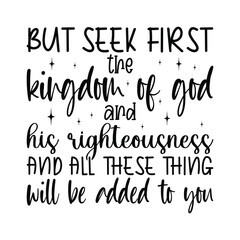 BUT SEEK FIRST
the
kingdom of god
and
his righteousness
AND ALL THESE THING
will be added to you